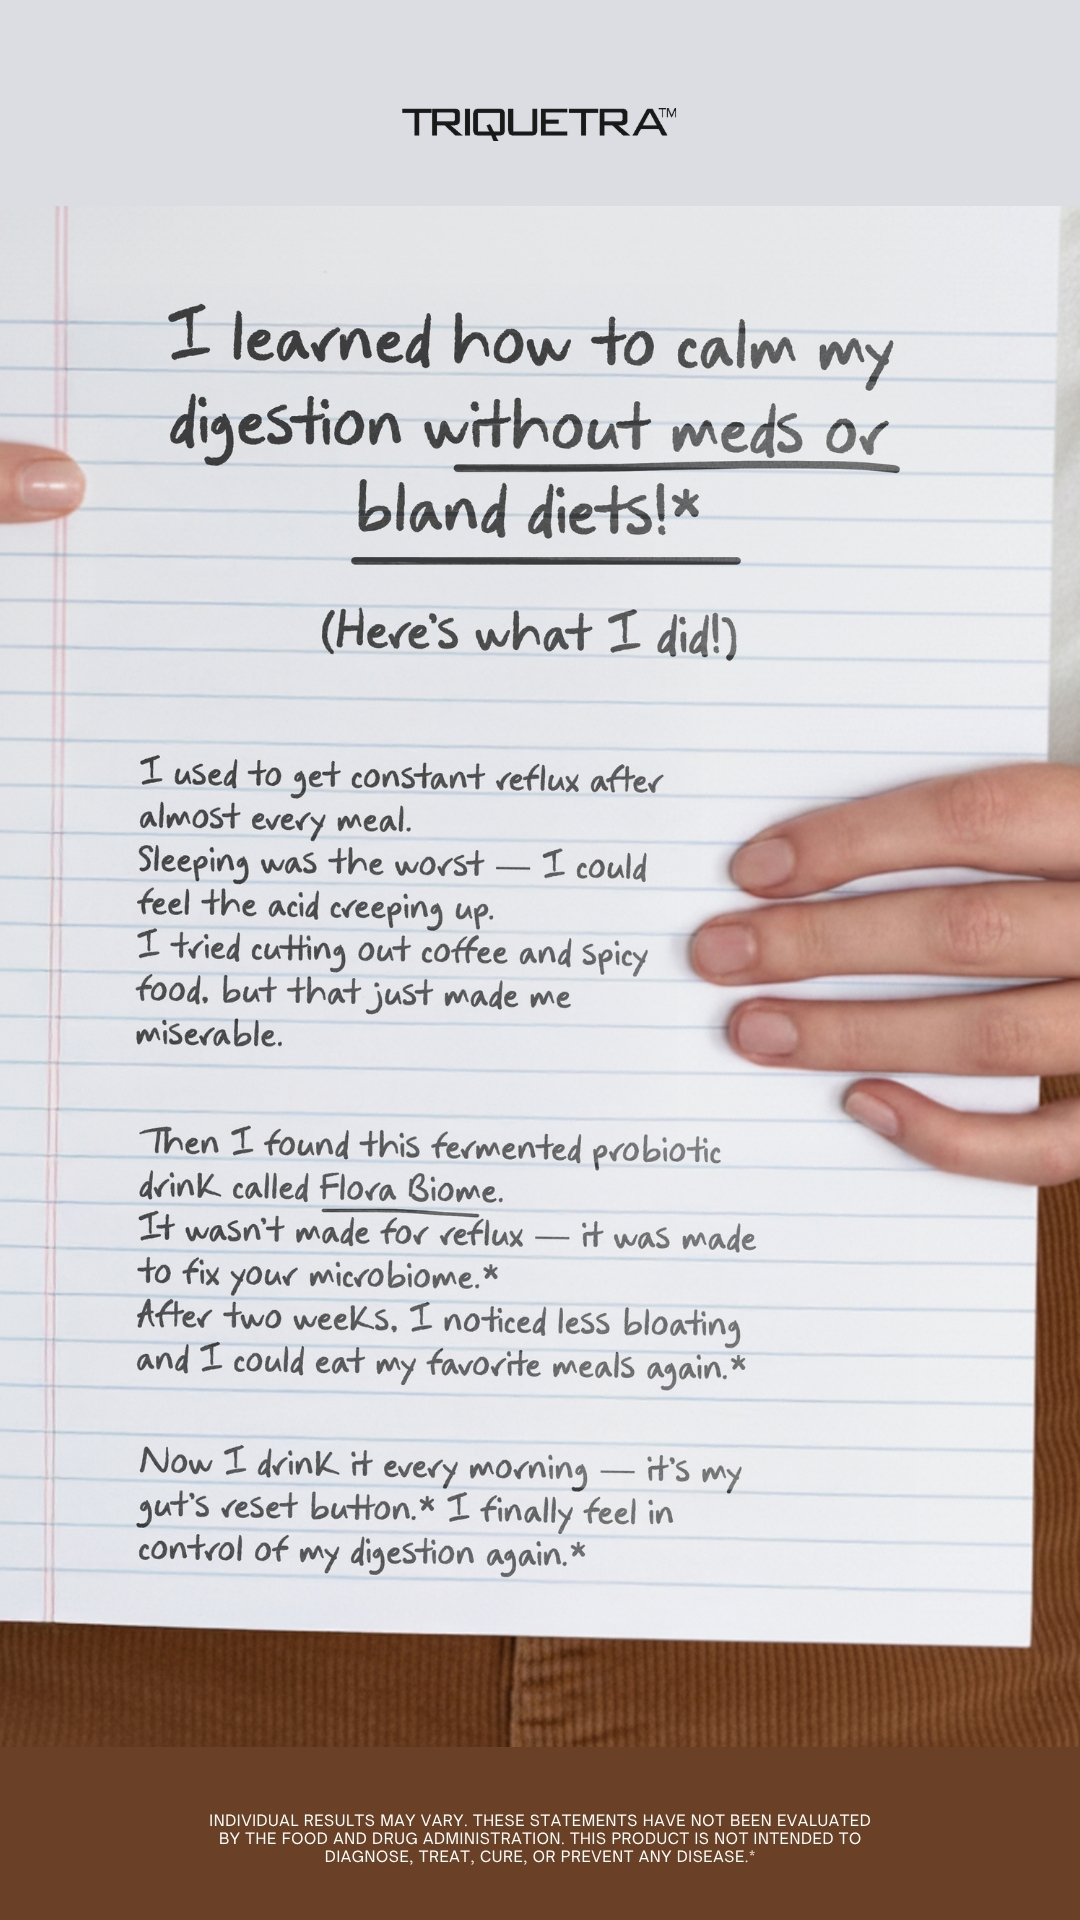 TRIQUETRA™
I learned how to calm my
digestion without meds or
bland diets!*
(Here's what I did!)
I used to get constant reflux after
almost every meal.
Sleeping was the worst — I could
feel the acid creeping up.
I tried cutting out coffee and spicy
food, but that just made me
miserable.
Then I found this fermented probiotic
drink called Flora Biome.
It wasn't made for reflux — it was made
to fix your microbiome.*
After two weeks, I noticed less bloating
and I could eat my favorite meals again.*
Now I drink it every morning — it's my
gut's reset button.* I finally feel in
control of my digestion again.*
INDIVIDUAL RESULTS MAY VARY. THESE STATEMENTS HAVE NOT BEEN EVALUATED
BY THE FOOD AND DRUG ADMINISTRATION. THIS PRODUCT IS NOT INTENDED TO
DIAGNOSE, TREAT, CURE, OR PREVENT ANY DISEASE.*